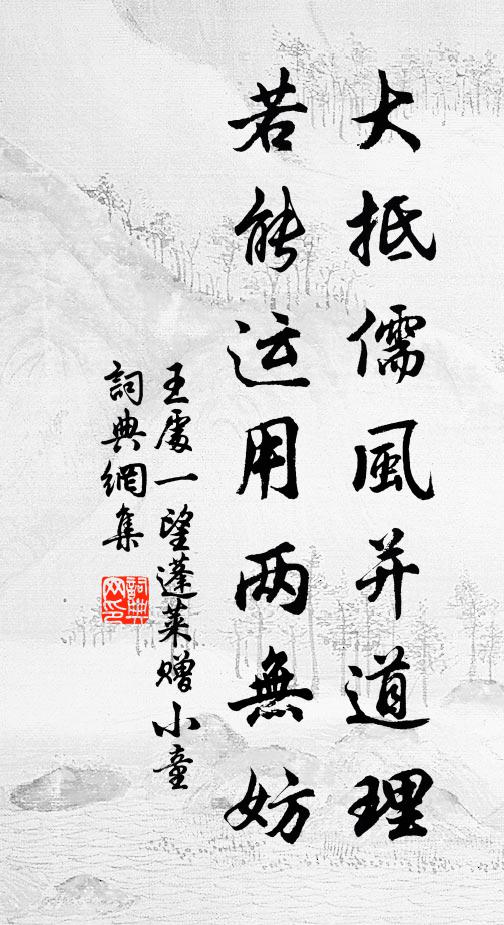 大抵儒風并道理
若能运用两無妨
王處一望蓬萊赠小童
詞典網集
詞典網印